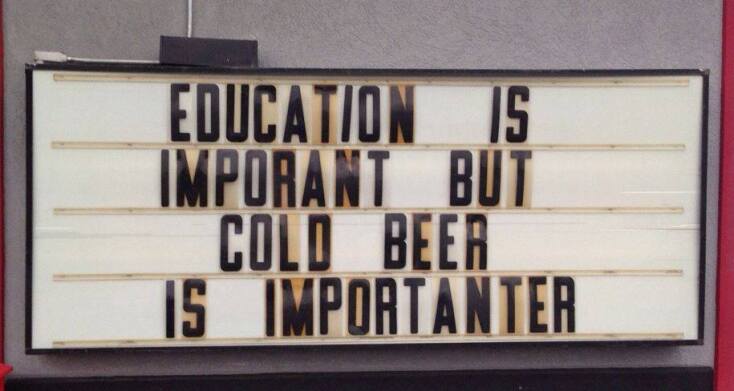 EDUCATION IS
IMPORANT BUT
COLD BEER
IS IMPORTANTER